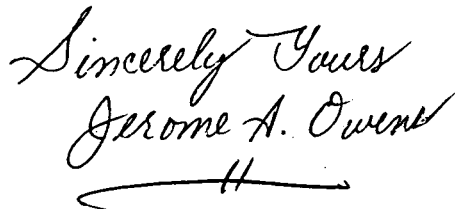 Sincerely Yours
Jerome A. Owens